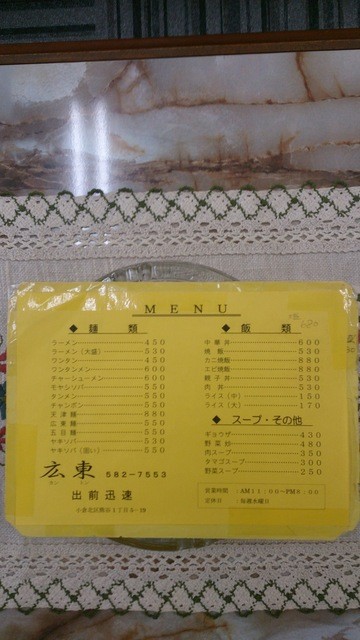 MENU
◆ 麺 類
ラーメン 450
ラーメン (大盛) 530
ワンタン 450
ワンタンメン 600
チャーシューメン 600
モヤシソバ 550
タンメン 550
チャンポン 550
天津麺 880
広東麺 550
五目麺 550
ヤキソバ 530
ヤキソバ (固い) 550
◆ 飯 類
中華丼 600
焼飯 530
カニ焼飯 880
エビ焼飯 880
親子丼 530
肉丼 530
ライス (中) 150
ライス (大) 170
◆ スープ・その他
ギョウザ 430
野菜炒 480
肉スープ 350
タマゴスープ 300
野菜スープ 250
広東 582-7553
出前迅速
営業時間 : AM11:00~PM9:00
定休日 : 毎週水曜日